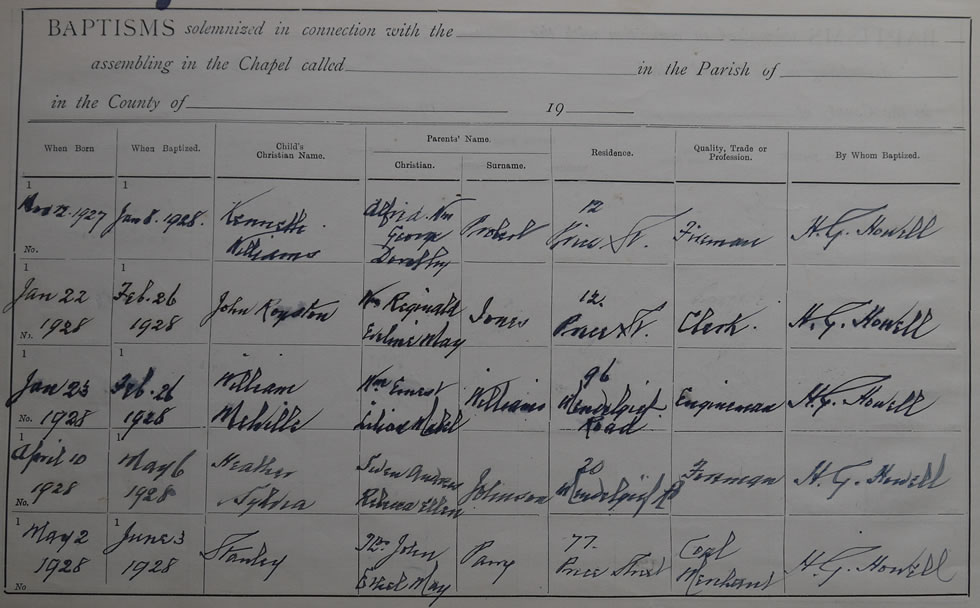 BAPTISMS solemnized in connection with the
assembling in the Chapel called in the Parish of
in the County of 19
When Born When Baptized. Child's Christian Name. Parents' Name. Christian. Surname. Residence. Quality, Trade or Profession. By Whom Baptized.
1 1
1927 Jan 8. 1928. Kenneth Williams Alfred Wm George Dorothy Probert 12 Price St. Fireman H. G. Howell
No.
1 1
Jan 22 1928 Feb. 26 1928 John Royston Wm Reginald May Jones 12. Price St. Clerk. H. G. Howell
No.
1 1
Jan 23 1928 Feb. 26 1928 William Melville Wm Ernest Lilian Mabel Williams 96 Mendelgief Road Engineman H. G. Howell
No.
1 1
April 10 1928 May 6 1928 Heather Sylvia Andrew Rebecca Ellen Johnson 20 Mendelgief Rd Foreman H. G. Howell
No.
1 1
May 2 1928 June 3 1928 Stanley John Ethel May Parry 77. Price Street Coal Merchant H. G. Howell
No